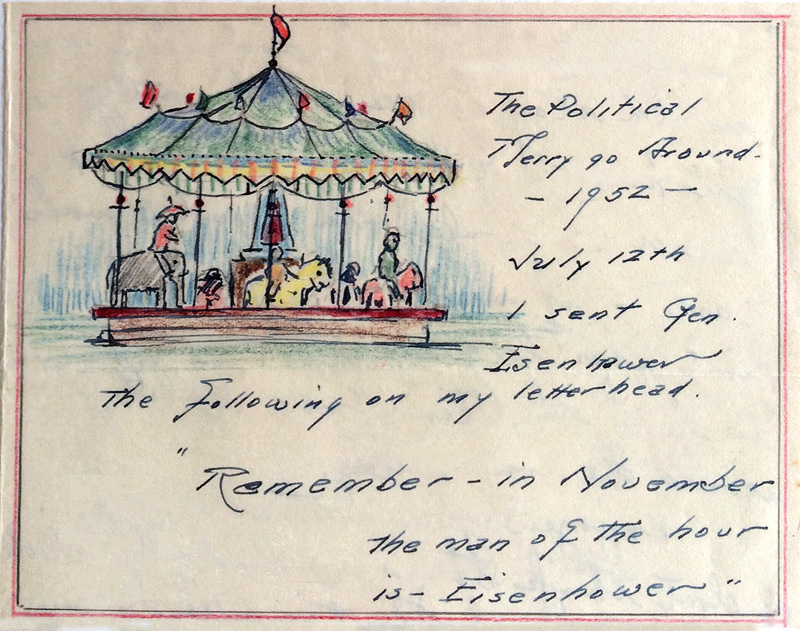 The Political
Merry go Around -
- 1952 -
July 12th
I sent Gen.
Eisenhower
the following on my letterhead.
"Remember - in November
the man of the hour
is - Eisenhower"